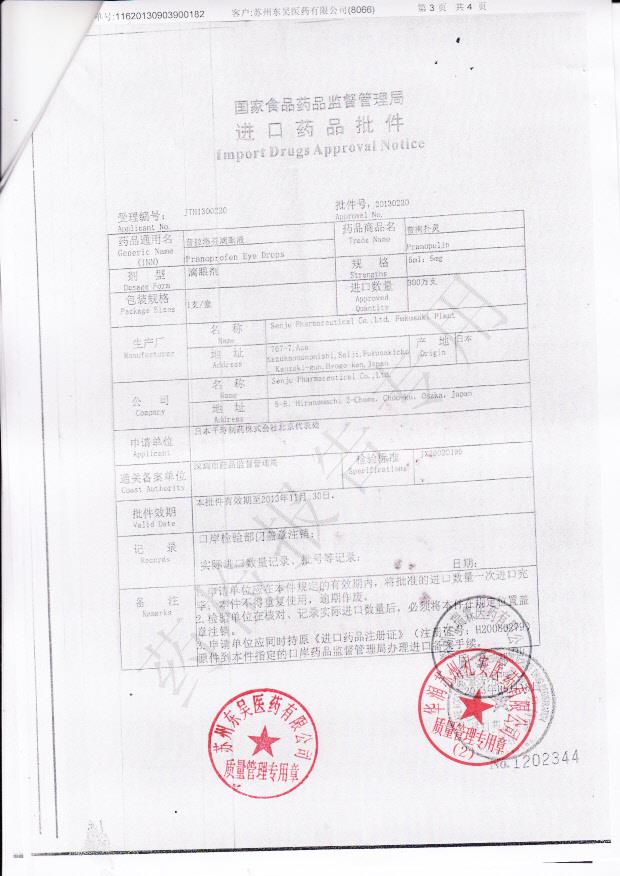 单号:11620130903900182 客户:苏州东吴医药有限公司(8066) 第 3 页 共 4 页
国家食品药品监督管理局
进口药品批件
Import Drugs Approval Notice
受理编号: JTH1300220 批件号: 20130220
Applicant No. Approval No.
药品通用名 普拉洛芬滴眼液 药品商品名 普南扑灵
Generic Name Trade Name
(INN) Pranoprofen Eye Drops Pranopulin
剂 型 滴眼剂 规 格 5ml: 5mg
Dosage Form Strengths
包装规格 1支/盒 进口数量 300万支
Package Sizes Approved
Quantity
生产厂 名 称 Senju Pharmaceutical Co.,Ltd. Fukusaki Plant
Manufacturer Name
地 址 767-7,Aza 产 地 日本
Address Kazukunounonishi,Saiji,Fukusakicho Origin
Kanzaki-gun,Hyogo-ken,Japan
公 司 名 称 Senju Pharmaceutical Co.,Ltd.
Company Name
地 址 Hiranomachi 2-Chome, Chuo-ku, Osaka, Japan
Address
申请单位 日本千寿制药株式会社北京代表处
Applicant
通关备案单位 深圳市药品监督管理局 检验标准 JX20020195
Coast Authority Specifications
批件效期 本批件有效期至2013年11月30日。
Valid Date
记 录 口岸检验部门盖章注销:
Records 实际进口数量记录、批号等记录: 日期:
备 注 1.申请单位应在本件规定的有效期内,将批准的进口数量一次进口完
Remarks 毕,本件不得重复使用,逾期作废。
2.检验单位在核对、记录实际进口数量后,必须将本件在规定位置盖
章注销。
3.申请单位应同时持原《进口药品注册证》(注册证号:
原件到本件指定的口岸药品监督管理局办理进口备案手续。
药检报告专用
苏州东吴医药有限公司
质量管理专用章
华润苏州礼安医药有限公司
质量管理专用章
(2)
No.1202344